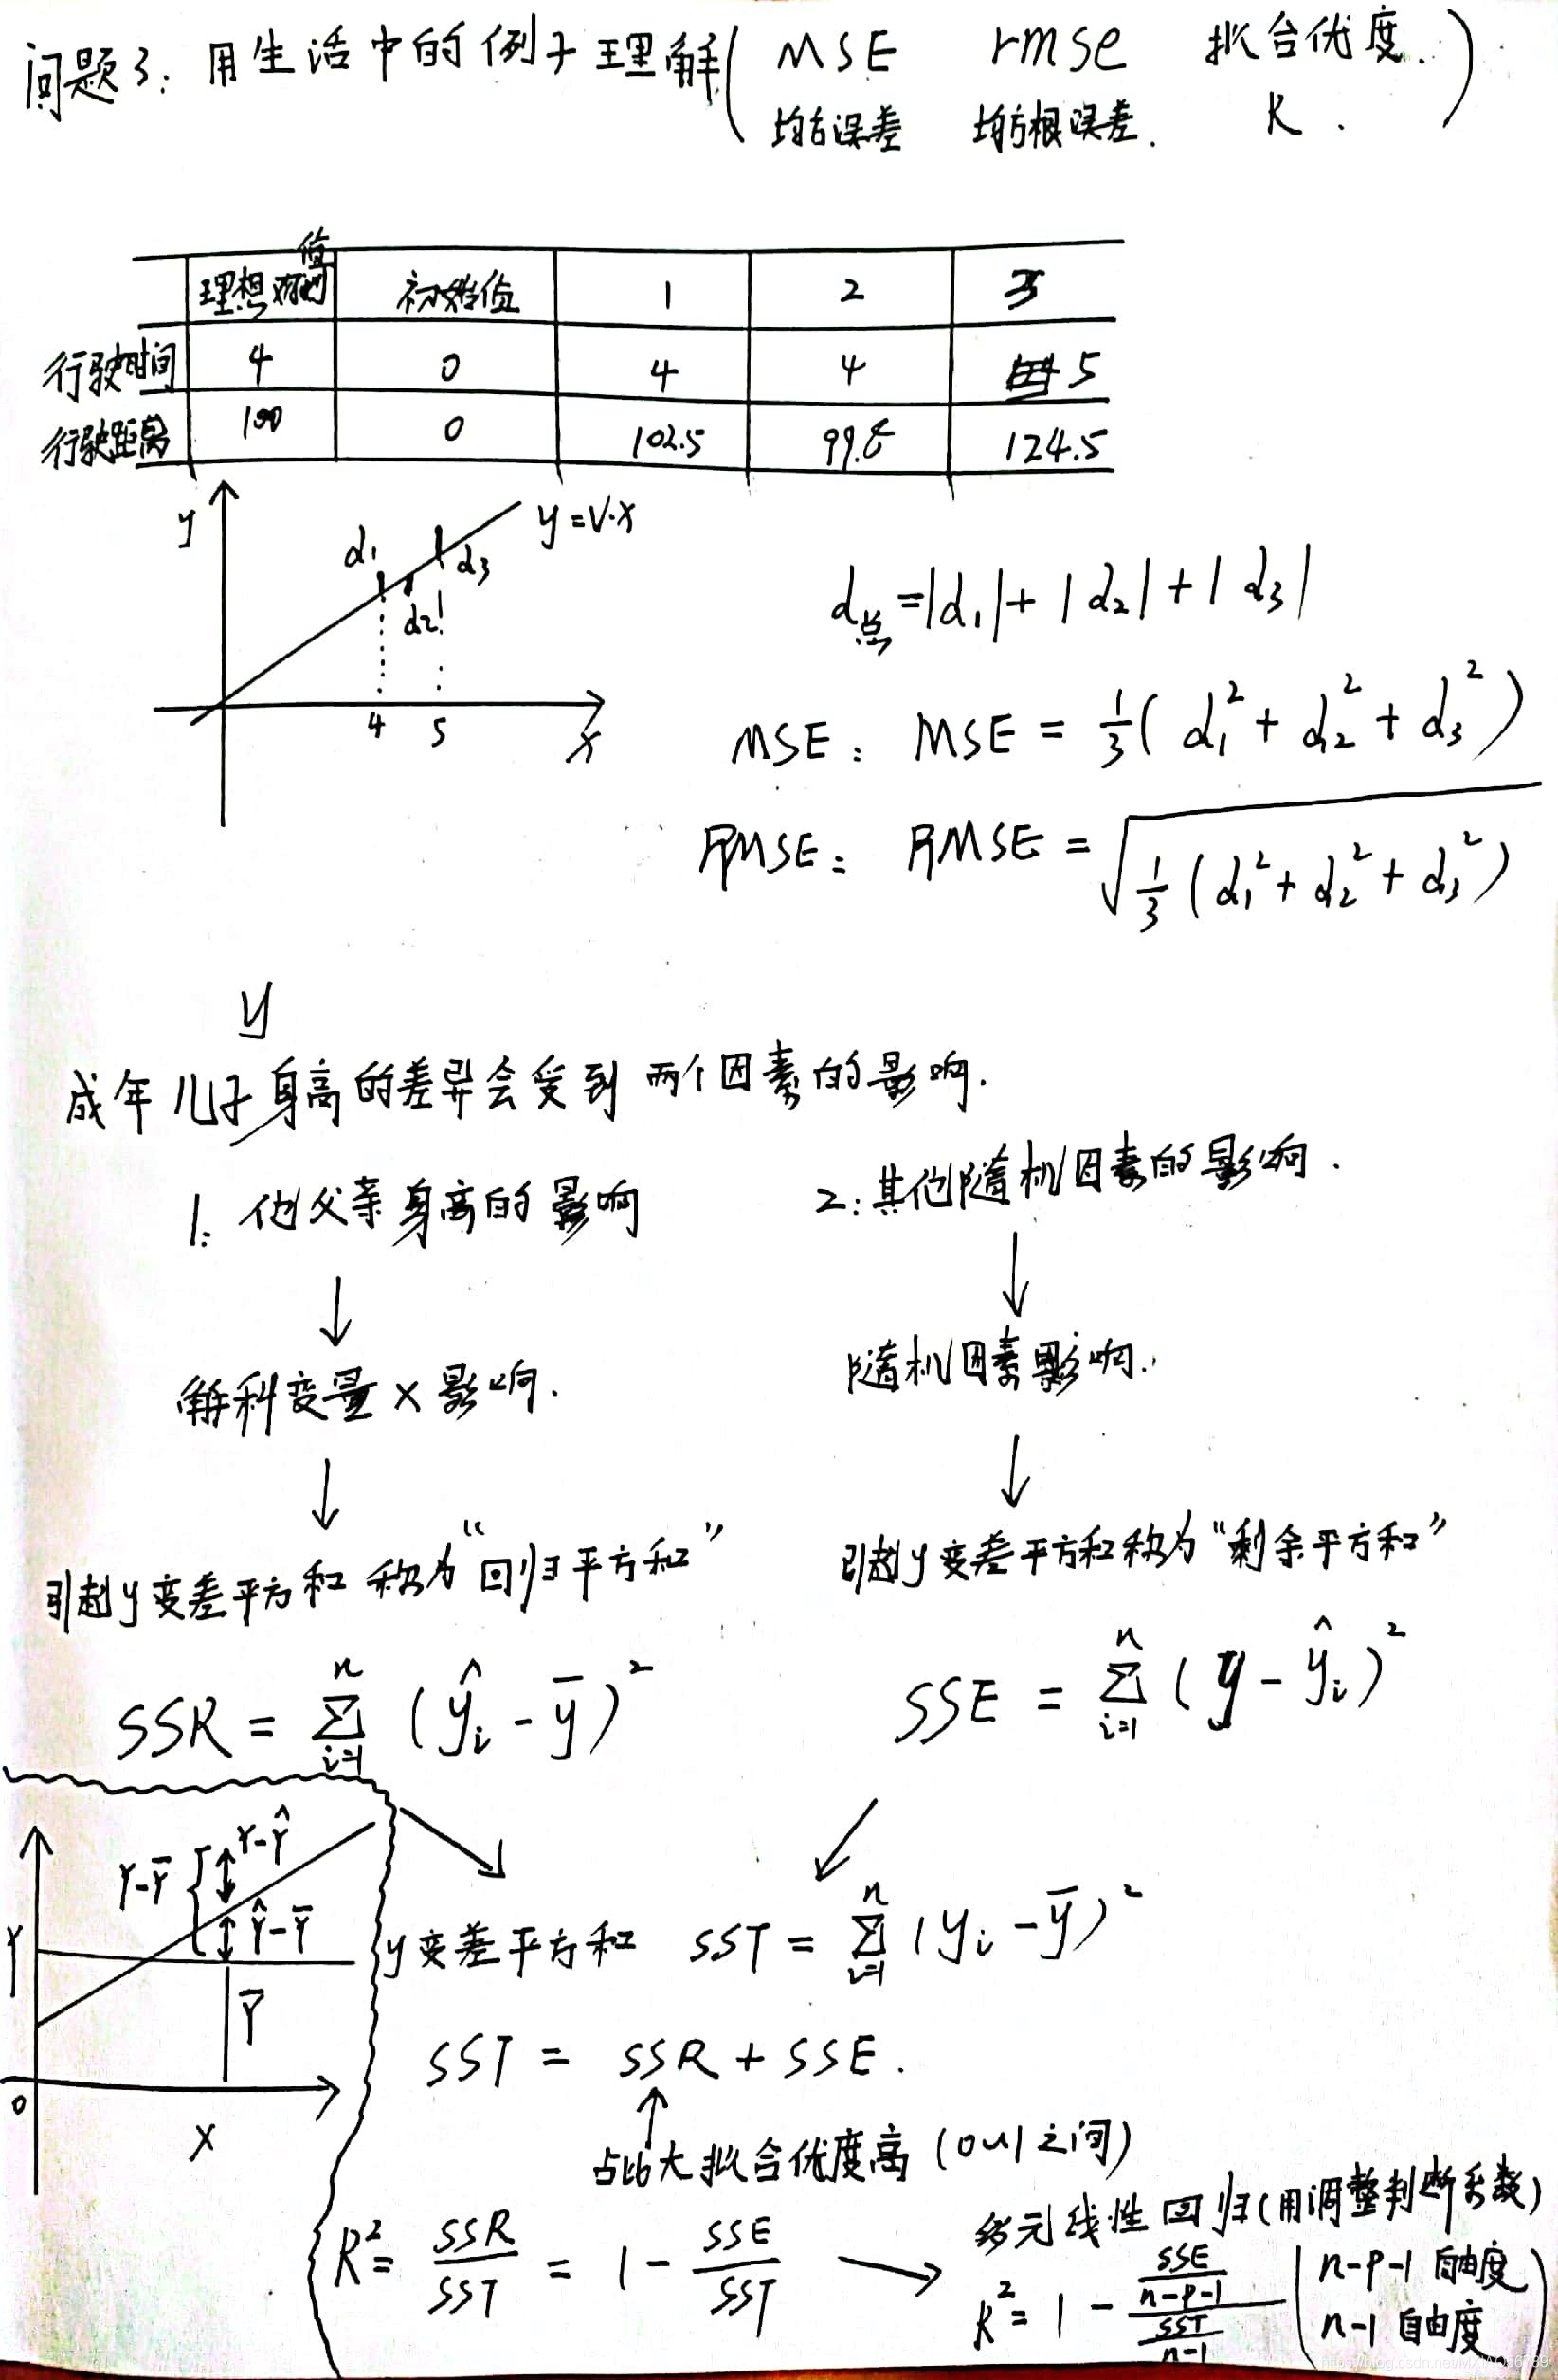 问题3: 用生活中的例子理解( MSE rmse 拟合优度. )
均方误差 均方根误差. R.
理想值 初始值 1 2 3
行驶时间 4 0 4 4 5
行驶距离 100 0 102.5 99.5 124.5
y d₁ d₂ d₃ y=V·x
4 5 x
d总=|d₁|+|d₂|+|d₃|
MSE: MSE = 1/3(d₁²+d₂²+d₃²)
RMSE: RMSE = √(1/3(d₁²+d₂²+d₃²))
y
成年儿子身高的差异会受到两个因素的影响.
1. 他父亲身高的影响 2:其他随机因素的影响.
↓ ↓
解释变量x影响. 随机因素影响.
↓ ↓
引起y变差平方和称为“回归平方和” 引起y变差平方和称为“剩余平方和”
SSR = Σ_{i=1}^{n} (ŷᵢ - ȳ)² SSE = Σ_{i=1}^{n} (y - ŷᵢ)²
Y-Ȳ Y-Ŷ
Ŷ-Ȳ
Y Ȳ
0 X
y变差平方和 SST = Σ_{i=1}^{n} (yᵢ - ȳ)²
SST = SSR + SSE.
↑
占比大拟合优度高 (0~1之间)
R² = SSR/SST = 1 - SSE/SST → 多元线性回归(用调整判断系数)
R² = 1 - (SSE/(n-p-1))/(SST/(n-1)) (n-p-1 自由度
n-1 自由度)